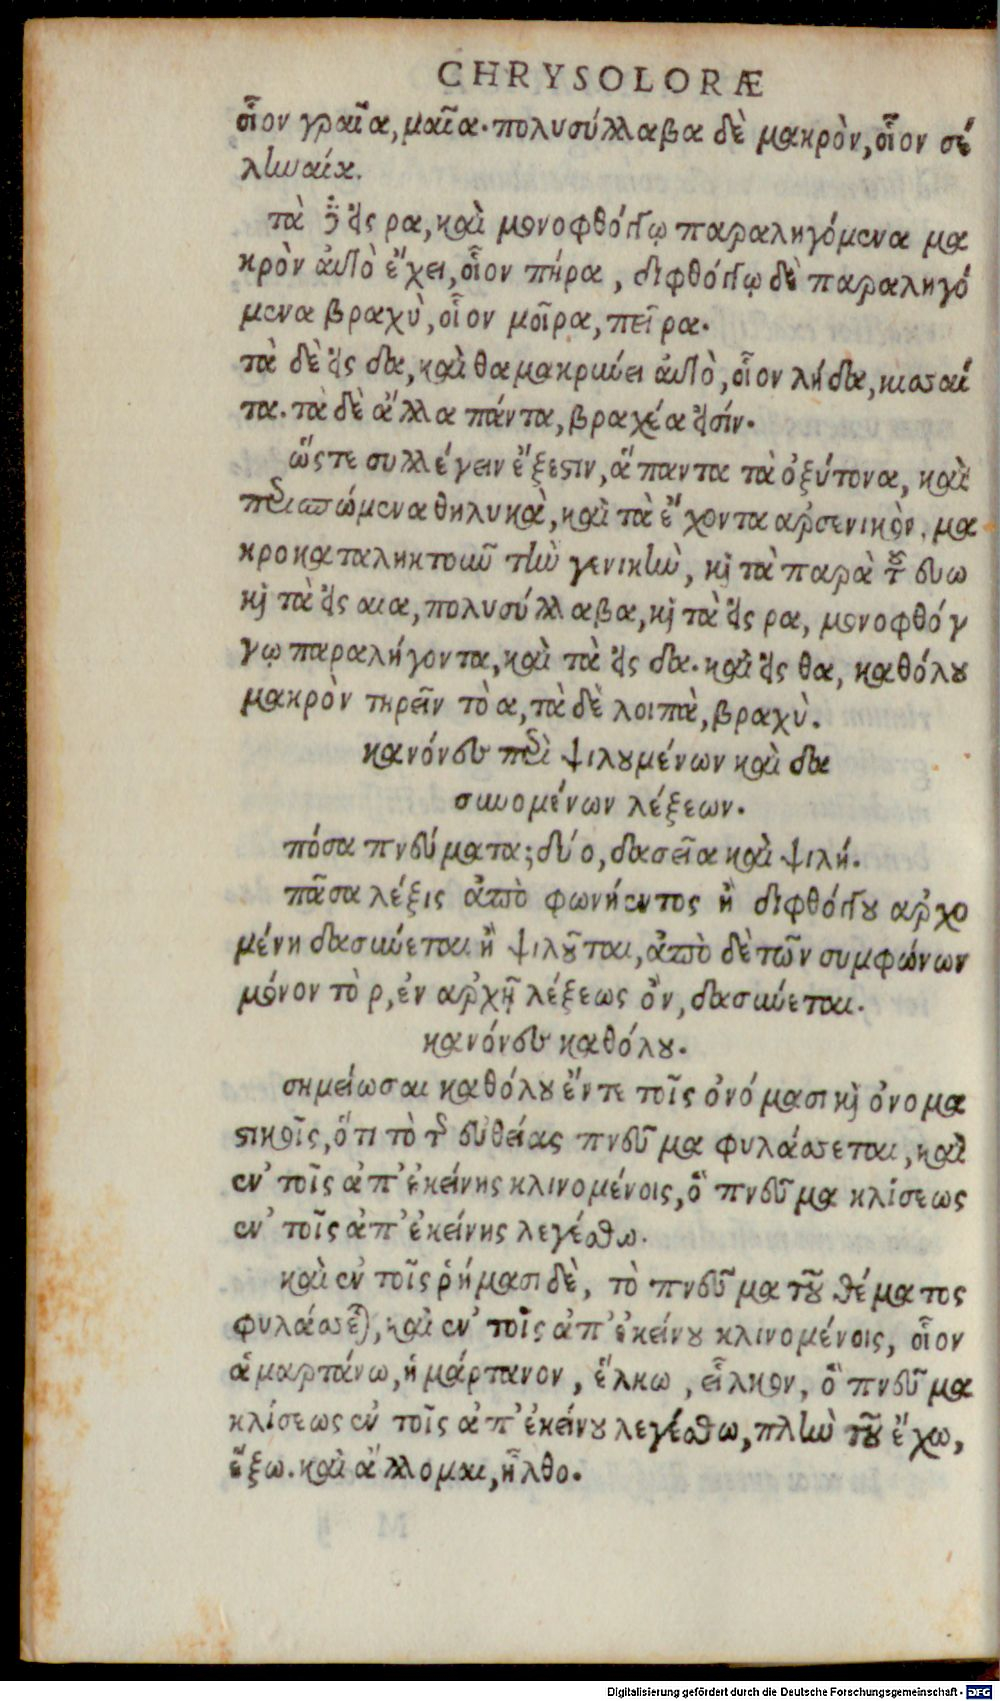 CHRYSOLORÆ
οἷον γραῖα, μαῖα. πολυσύλλαβα δὲ μακρὸν, οἷον σέ
ληναία.
τὰ εἰς ρα, καὶ μονοφθόγγῳ παραληγόμενα μα
κρὸν αὐτὸ ἔχει, οἷον πήρα, διφθόγγῳ δὲ παραληγό
μενα βραχὺ, οἷον μοῖρα, πεῖρα.
τὰ δὲ εἰς δα, καὶ θα μακρύνει αὐτὸ, οἷον λήδα,
τα. τὰ δὲ ἄλλα πάντα, βραχέα εἰσίν.
ὥςτε συλλέγειν ἔξεστιν, ἅπαντα τὰ ὀξύτονα, καὶ
περισπώμενα θηλυκὰ, καὶ τὰ ἔχοντα αρσενικὸν, μα
κροκαταληκτοῦν τὴν γενικὴν, καὶ τὰ παρὰ τοῦ ευω
καὶ τὰ εἰς αια, πολυσύλλαβα, καὶ τὰ εἰς ρα, μονοφθόγ
γῳ παραλήγοντα, καὶ τὰ εἰς δα. καὶ εἰς θα, καθόλου
μακρὸν τηρεῖν τὸ α, τὰ δὲ λοιπὰ, βραχὺ.
κανόνες περὶ ψιλουμένων καὶ δα
συνομένων λέξεων.
πόσα πνεύματα; δύο, δασεῖα καὶ ψιλή.
πᾶσα λέξις ἀπὸ φωνήεντος ἢ διφθόγγου αρχο
μένη δασύνεται ἢ ψιλοῦται, ἀπὸ δὲ τῶν συμφώνων
μόνον τὸ ρ, ἐν αρχῇ λέξεως ὂν, δασύνεται.
κανόνες καθόλου.
σημείωσαι καθόλου ἔν τε τοῖς ὀνόμασι καὶ ὀνομα
στικοῖς, ὅτι τὸ τῆς εὐθείας πνεῦμα φυλάσσεται, καὶ
ἐν τοῖς ἀπ' ἐκείνης κλινομένοις, ὃ πνεῦμα κλίσεως
ἐν τοῖς ἀπ' ἐκείνης λεγέσθω.
καὶ ἐν τοῖς ῥήμασι δὲ, τὸ πνεῦμα τοῦ θέματος
φυλάσσεται, καὶ ἐν τοῖς ἀπ' ἐκείνου κλινομένοις, οἷον
ἁμαρτάνω, ἡμάρτανον, ἕλκω, εἷλκον, ὃ πνεῦμα
κλίσεως ἐν τοῖς ἀπ' ἐκείνου λεγέσθω, πλὴν τοῦ ἔχω,
ἕξω. καὶ ἅλλομαι, ἦλθο.
Digitalisierung gefördert durch die Deutsche Forschungsgemeinschaft - DFG